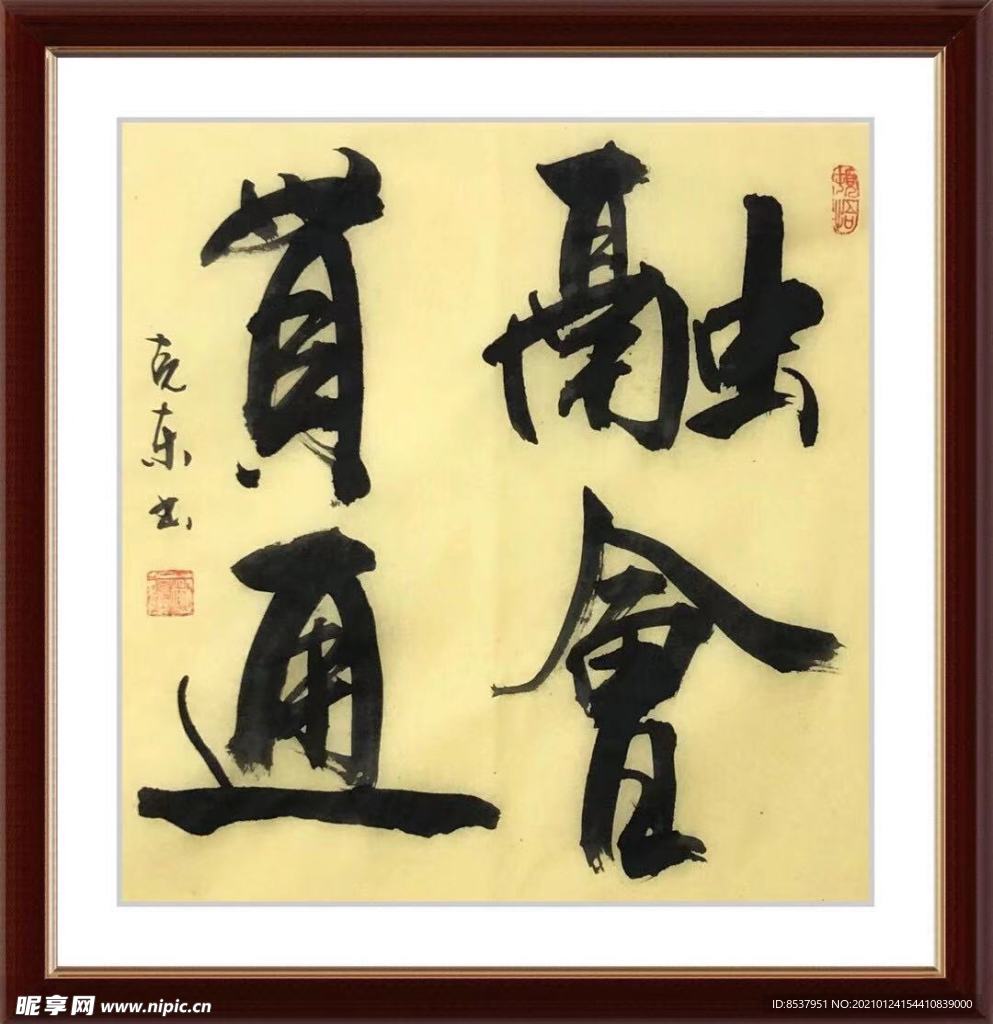 融會
貫通
克东书
昵享网 www.nipic.cn
ID:8537951 NO:20210124154410839000